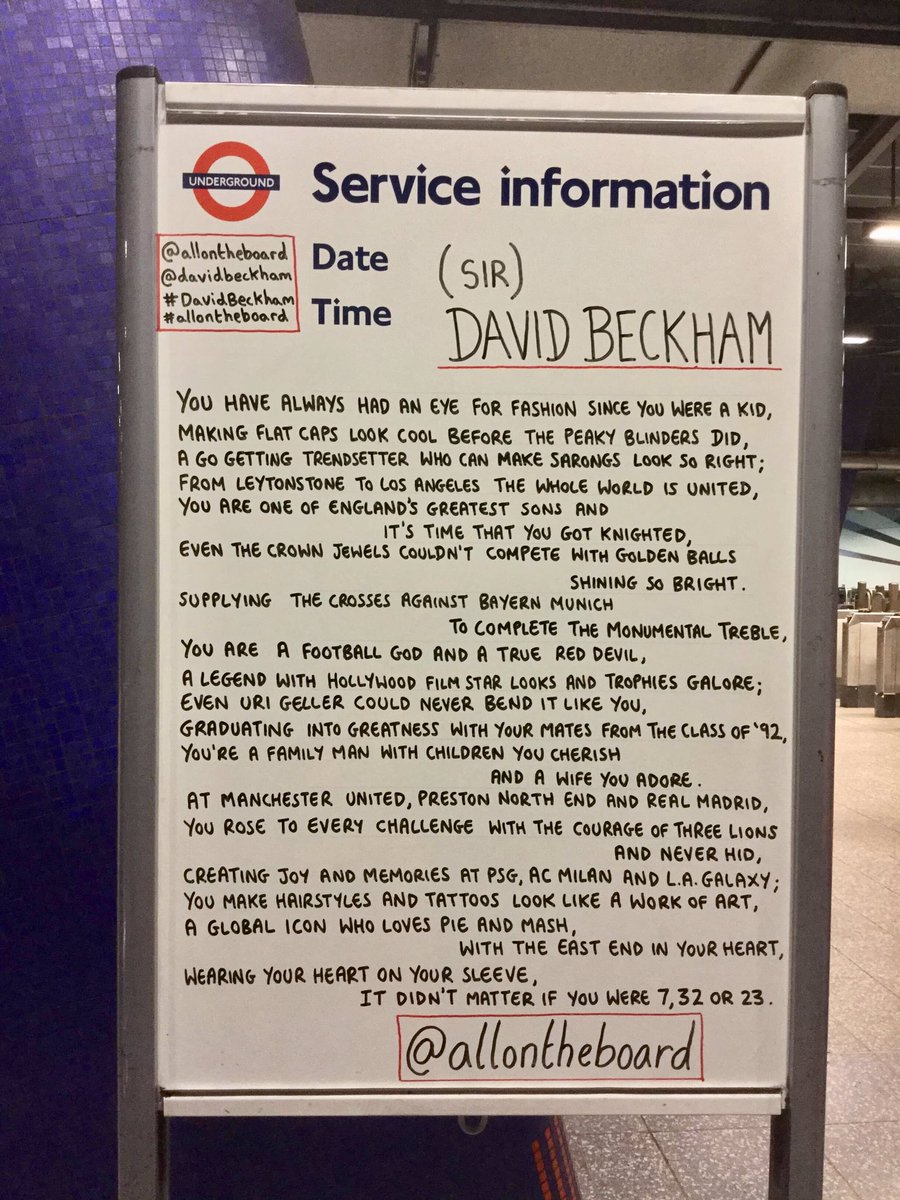 UNDERGROUND
Service information
@allontheboard
@davidbeckham
#DavidBeckham
#allontheboard
Date
Time
(SIR)
DAVID BECKHAM
YOU HAVE ALWAYS HAD AN EYE FOR FASHION SINCE YOU WERE A KID,
MAKING FLAT CAPS LOOK COOL BEFORE THE PEAKY BLINDERS DID,
A GO GETTING TRENDSETTER WHO CAN MAKE SARONGS LOOK SO RIGHT;
FROM LEYTONSTONE TO LOS ANGELES THE WHOLE WORLD IS UNITED,
YOU ARE ONE OF ENGLAND'S GREATEST SONS AND
IT'S TIME THAT YOU GOT KNIGHTED,
EVEN THE CROWN JEWELS COULDN'T COMPETE WITH GOLDEN BALLS
SHINING SO BRIGHT.
SUPPLYING THE CROSSES AGAINST BAYERN MUNICH
TO COMPLETE THE MONUMENTAL TREBLE,
YOU ARE A FOOTBALL GOD AND A TRUE RED DEVIL,
A LEGEND WITH HOLLYWOOD FILM STAR LOOKS AND TROPHIES GALORE;
EVEN URI GELLER COULD NEVER BEND IT LIKE YOU,
GRADUATING INTO GREATNESS WITH YOUR MATES FROM THE CLASS OF '92,
YOU'RE A FAMILY MAN WITH CHILDREN YOU CHERISH
AND A WIFE YOU ADORE.
AT MANCHESTER UNITED, PRESTON NORTH END AND REAL MADRID,
YOU ROSE TO EVERY CHALLENGE WITH THE COURAGE OF THREE LIONS
AND NEVER HID,
CREATING JOY AND MEMORIES AT PSG, AC MILAN AND L.A. GALAXY;
YOU MAKE HAIRSTYLES AND TATTOOS LOOK LIKE A WORK OF ART,
A GLOBAL ICON WHO LOVES PIE AND MASH,
WITH THE EAST END IN YOUR HEART,
WEARING YOUR HEART ON YOUR SLEEVE,
IT DIDN'T MATTER IF YOU WERE 7, 32 OR 23.
@allontheboard